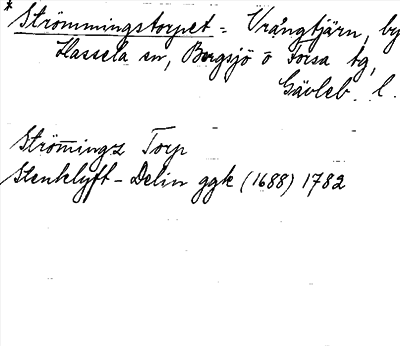 * Strömmingstorpet = Vrångtjärn, by
Hassela sn, Bergsjö o Forsa tg,
Gävleb. l.
Strömingz Torp
Stenklyft-Delin ggk (1688) 1782